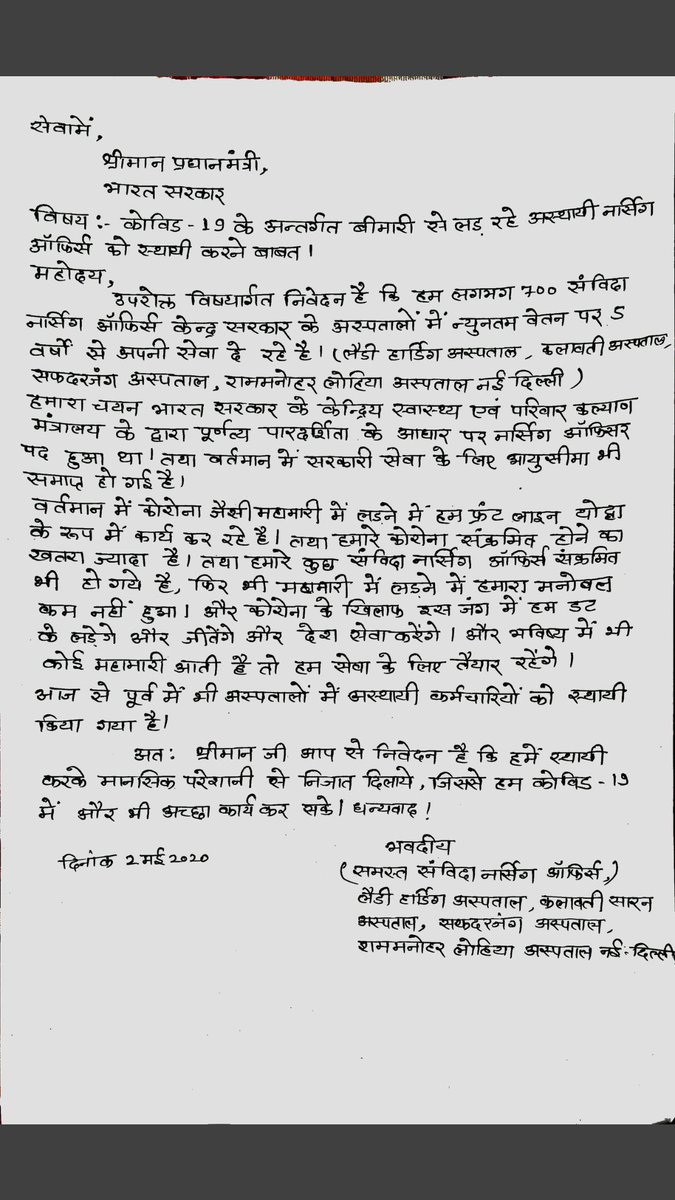 सेवामें,
श्रीमान प्रधानमंत्री,
भारत सरकार
विषय :- कोविड - 19 के अन्तर्गत बीमारी से लड़ रहे अस्थायी नर्सिग
ऑफिर्स को स्थायी करने बाबत।
महोदय,
उपरोक्त विषयार्गत निवेदन है कि हम लगभग 700 संविदा
नर्सिग ऑफिर्स केन्द्र सरकार के अस्पतालों में न्युनतम वेतन पर 5
वर्षो से अपनी सेवा दे रहे है। (लैडी हार्डिग अस्पताल, कलावती अस्पताल,
सफदरजंग अस्पताल, राममनोहर लोहिया अस्पताल नई दिल्ली)
हमारा चयन भारत सरकार के केन्द्रिय स्वास्थ्य एवं परिवार कल्याण
मंत्रालय के द्वारा पूर्णत्य पारदर्शिता के आधार पर नर्सिग ऑफिसर
पद हुआ था। तथा वर्तमान में सरकारी सेवा के लिए आयुसीमा भी
समाप्त हो गई है।
वर्तमान में कोरोना जैसी महामारी में लड़ने में हम फ्रंट लाइन योद्वा
के रूप में कार्य कर रहे है। तथा हमारे कोरोना संक्रमित होने का
खतरा ज्यादा है। तथा हमारे कुछ संविदा नार्सिग ऑफिर्स संक्रमित
भी हो गये है, फिर भी महामारी में लड़ने में हमारा मनोबल
कम नहीं हुआ। और कोरोना के खिलाफ इस जंग में हम डट
के लड़ेगे और जीतेंगे और देश सेवा करेंगे। और भविष्य में भी
कोई महामारी आती है तो हम सेवा के लिए तैयार रहेंगे।
आज से पूर्व में भी अस्पतालों में अस्थायी कर्मचारियों को स्थायी
किया गया है।
अतः श्रीमान जी आप से निवेदन है कि हमें स्थायी
करके मानसिक परेशानी से निजात दिलाये, जिससे हम कोविड - 19
में और भी अच्छा कार्य कर सके। धन्यवाद!
भवदीय
दिनांक 2 मई 2020
(समस्त संविदा नर्सिग ऑफिर्स,)
लैडी हार्डिग अस्पताल, कलावती सारन
अस्पताल, सफदरजंग अस्पताल,
राममनोहर लोहिया अस्पताल नई-दिल्ली